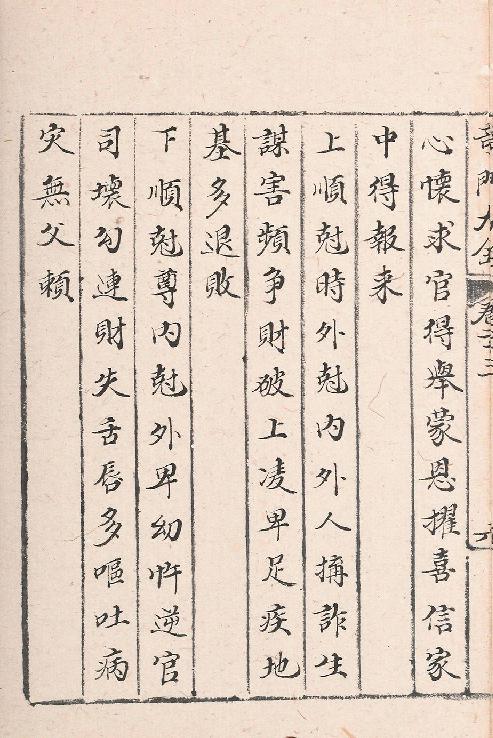 奇門大全 卷之三 九
心懷求官得舉蒙恩擢喜信家
中得報来
上順尅時外尅内外人搆詐生
謀害頻争財破上凌卑足疾地
基多退敗
下順尅尊内尅外卑幼忤逆官
司壞勾連財失舌唇多嘔吐病
灾無父賴